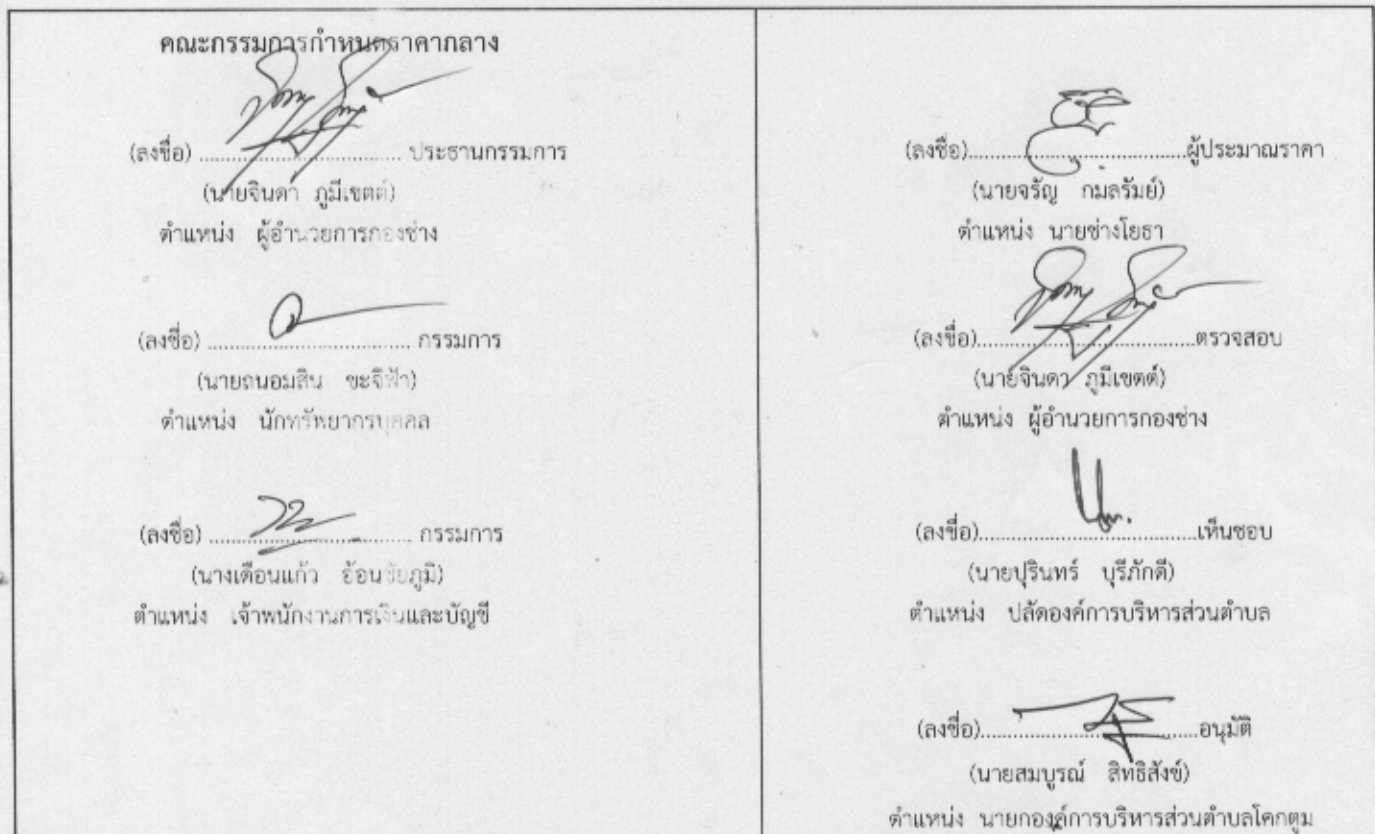 คณะกรรมการกำหนดราคากลาง
(ลงชื่อ) .................................. ประธานกรรมการ
(นายจินดา ภูมีเขตต์)
ตำแหน่ง ผู้อำนวยการกองช่าง
(ลงชื่อ) .................................. กรรมการ
(นายถนอมสิน ขะจีฟ้า)
ตำแหน่ง นักทรัพยากรบุคคล
(ลงชื่อ) .................................. กรรมการ
(นางเดือนแก้ว อ้อนชัยภูมิ)
ตำแหน่ง เจ้าพนักงานการเงินและบัญชี
(ลงชื่อ)....................................ผู้ประมาณราคา
(นายจรัญ กมลรัมย์)
ตำแหน่ง นายช่างโยธา
(ลงชื่อ)....................................ตรวจสอบ
(นายจินดา ภูมีเขตต์)
ตำแหน่ง ผู้อำนวยการกองช่าง
(ลงชื่อ)....................................เห็นชอบ
(นายปุรินทร์ บุรีภักดี)
ตำแหน่ง ปลัดองค์การบริหารส่วนตำบล
(ลงชื่อ)....................................อนุมัติ
(นายสมบูรณ์ สิทธิสังข์)
ตำแหน่ง นายกองค์การบริหารส่วนตำบลโคกตูม